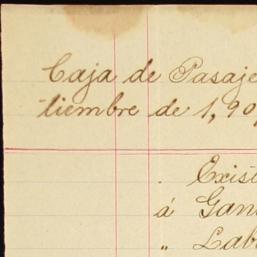 Caja de Pasaje
tiembre de 1,90
. Exis
á Gan
" Lab